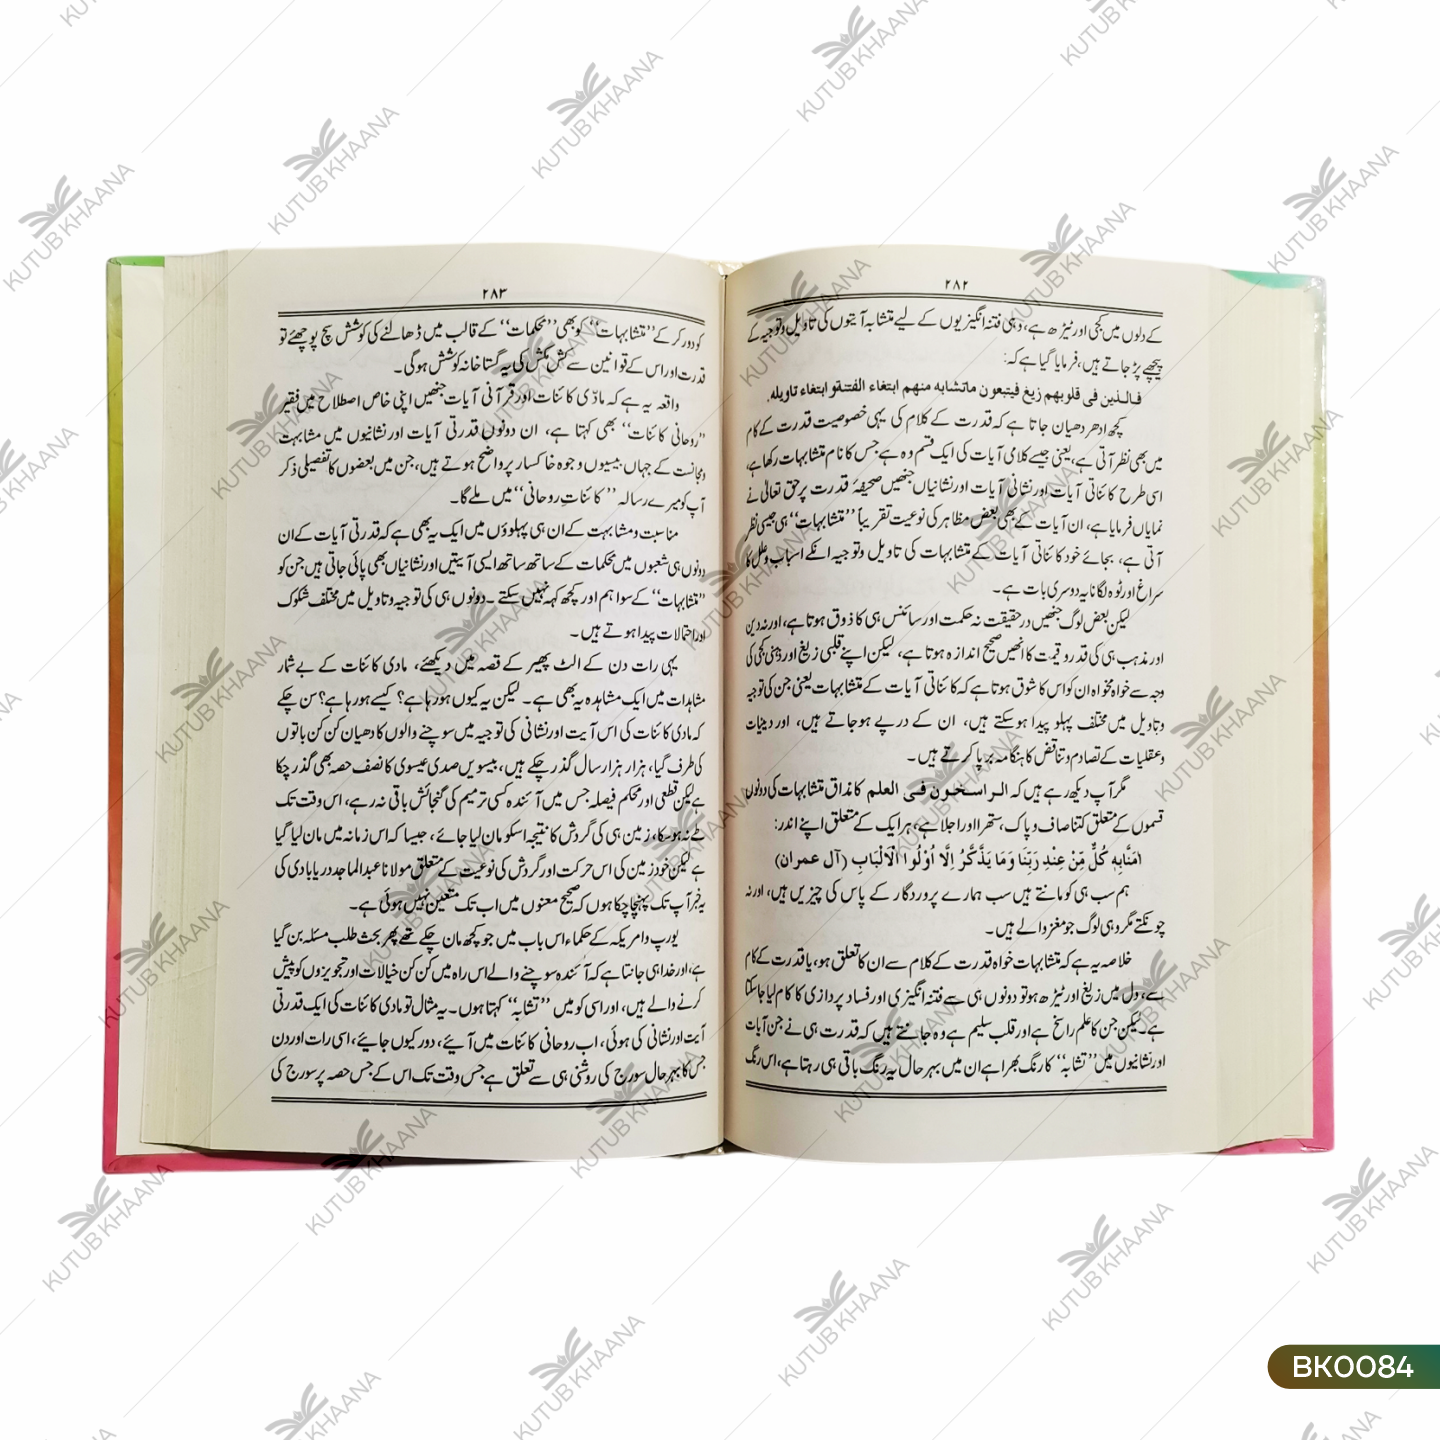 ۲۸۲
کے دلوں میں کجی اور ٹیڑھ ہے، وہی فتنہ انگیزیوں کے لیے متشابہ آیتوں کی تاویل و توجیہ کے
پیچھے پڑ جاتے ہیں، فرمایا گیا ہے کہ:
فالذین فی قلوبهم زیغ فیتبعون ماتشابه منهم ابتغاء الفتنةو ابتغاء تاویله.
کچھ ادھر دھیان جاتا ہے کہ قدرت کے کلام کی یہی خصوصیت قدرت کے کام
میں بھی نظر آتی ہے، یعنی جیسے کلامی آیات کی ایک قسم وہ ہے جس کا نام متشابہات رکھا ہے،
اسی طرح کائناتی آیات اور نشانی آیات اور نشانیاں جنھیں صحیفۂ قدرت پر حق تعالیٰ نے
نمایاں فرمایا ہے، ان آیات کے بھی بعض مظاہر کی نوعیت تقریباً ’’متشابہات‘‘ ہی جیسی نظر
آتی ہے، بجائے خود کائناتی آیات کے متشابہات کی تاویل و توجیہ انکے اسباب و علل کا
سراغ اور ٹوہ لگانا یہ دوسری بات ہے۔
لیکن بعض لوگ جنھیں در حقیقت نہ حکمت اور سائنس ہی کا ذوق ہوتا ہے، اور نہ دین
اور مذہب ہی کی قدر و قیمت کا انھیں صحیح اندازہ ہوتا ہے، لیکن اپنے قلبی زیغ اور ذہنی کجی کی
وجہ سے خواہ مخواہ ان کو اس کا شوق ہوتا ہے کہ کائناتی آیات کے متشابہات یعنی جن کی توجیہ
و تاویل میں مختلف پہلو پیدا ہو سکتے ہیں، ان کے درپے ہو جاتے ہیں، اور دینیات
و عقلیات کے تصادم و تناقض کا ہنگامہ برپا کرتے ہیں۔
مگر آپ دیکھ رہے ہیں کہ الراسخون فی العلم کا مذاق متشابہات کی دونوں
قسموں کے متعلق کتنا صاف و پاک، ستھرا اور اجلا ہے، ہر ایک کے متعلق اپنے اندر:
اٰمَنَّابِهٖ كُلٌّ مِّنْ عِنْدِ رَبِّنَا وَمَا يَذَّكَّرُ اِلَّا اُوْلُوا الْاَلْبَابِ (آل عمران)
ہم سب ہی کو مانتے ہیں سب ہمارے پروردگار کے پاس کی چیزیں ہیں، اور نہ
چونکتے مگر وہی لوگ جو مغز والے ہیں۔
خلاصہ یہ ہے کہ متشابہات خواہ قدرت کے کلام سے ان کا تعلق ہو، یا قدرت کے کام
سے، دل میں زیغ اور ٹیڑھ ہو تو دونوں ہی سے فتنہ انگیزی اور فساد پردازی کا کام لیا جا سکتا
ہے۔ لیکن جن کا علم راسخ ہے اور قلب سلیم ہے وہ جانتے ہیں کہ قدرت ہی نے جن آیات
اور نشانیوں میں ’’تشابہ‘‘ کا رنگ بھرا ہے ان میں بہر حال یہ رنگ باقی ہی رہتا ہے، اس رنگ
۲۸۳
کو دور کر کے ’’متشابہات‘‘ کو بھی ’’محکمات‘‘ کے قالب میں ڈھالنے کی کوشش سچ پوچھئے تو
قدرت اور اس کے قوانین سے کش مکش کی یہ گستاخانہ کوشش ہوگی۔
واقعہ یہ ہے کہ مادّی کائنات اور قرآنی آیات جنھیں اپنی خاص اصطلاح میں فقیر
’’روحانی کائنات‘‘ بھی کہتا ہے، ان دونوں قدرتی آیات اور نشانیوں میں مشابہت
و مجانست کے جہاں بیسیوں وجوہ خاکسار پر واضح ہوتے ہیں، جن میں بعضوں کا تفصیلی ذکر
آپ کو میرے رسالہ ’’کائناتِ روحانی‘‘ میں ملے گا۔
مناسبت و مشابہت کے ان ہی پہلوؤں میں ایک یہ بھی ہے کہ قدرتی آیات کے ان
دونوں ہی شعبوں میں محکمات کے ساتھ ساتھ ایسی آیتیں اور نشانیاں بھی پائی جاتی ہیں جن کو
’’متشابہات‘‘ کے سوا ہم اور کچھ کہہ نہیں سکتے۔ دونوں ہی کی توجیہ و تاویل میں مختلف شکوک
اور احتمالات پیدا ہوتے ہیں۔
یہی رات دن کے الٹ پھیر کے قصہ میں دیکھئے، مادی کائنات کے بے شمار
مشاہدات میں ایک مشاہدہ یہ بھی ہے۔ لیکن یہ کیوں ہو رہا ہے؟ کیسے ہو رہا ہے؟ سن چکے
کہ مادی کائنات کی اس آیت اور نشانی کی توجیہ میں سوچنے والوں کا دھیان کن کن باتوں
کی طرف گیا، ہزار ہزار سال گذر چکے ہیں، بیسویں صدی عیسوی کا نصف حصہ بھی گذر چکا
ہے لیکن قطعی اور محکم فیصلہ جس میں آئندہ کسی ترمیم کی گنجائش باقی نہ رہے، اس وقت تک
طے نہ ہو سکا، زمین ہی کی گردش کا نتیجہ اسکو مان لیا جائے، جیسا کہ اس زمانہ میں مان لیا گیا
ہے لیکن خود زمین کی اس حرکت اور گردش کی نوعیت کے متعلق مولانا عبدالماجد دریابادی کی
یہ خبر آپ تک پہنچا چکا ہوں کہ صحیح معنوں میں اب تک متعین نہیں ہوئی ہے۔
یورپ و امریکہ کے حکماء اس باب میں جو کچھ مان چکے تھے پھر بحث طلب مسئلہ بن گیا
ہے، اور خدا ہی جانتا ہے کہ آئندہ سوچنے والے اس راہ میں کن کن خیالات اور تجویزوں کو پیش
کرنے والے ہیں، اور اسی کو میں ’’تشابہ‘‘ کہتا ہوں۔ یہ مثال تو مادی کائنات کی ایک قدرتی
آیت اور نشانی کی ہوئی، اب روحانی کائنات میں آیئے، دور کیوں جایئے، اسی رات اور دن
جس کا بہر حال سورج کی روشنی ہی سے تعلق ہے جس وقت تک اس کے جس حصہ پر سورج کی
KUTUB KHAANA
BK0084